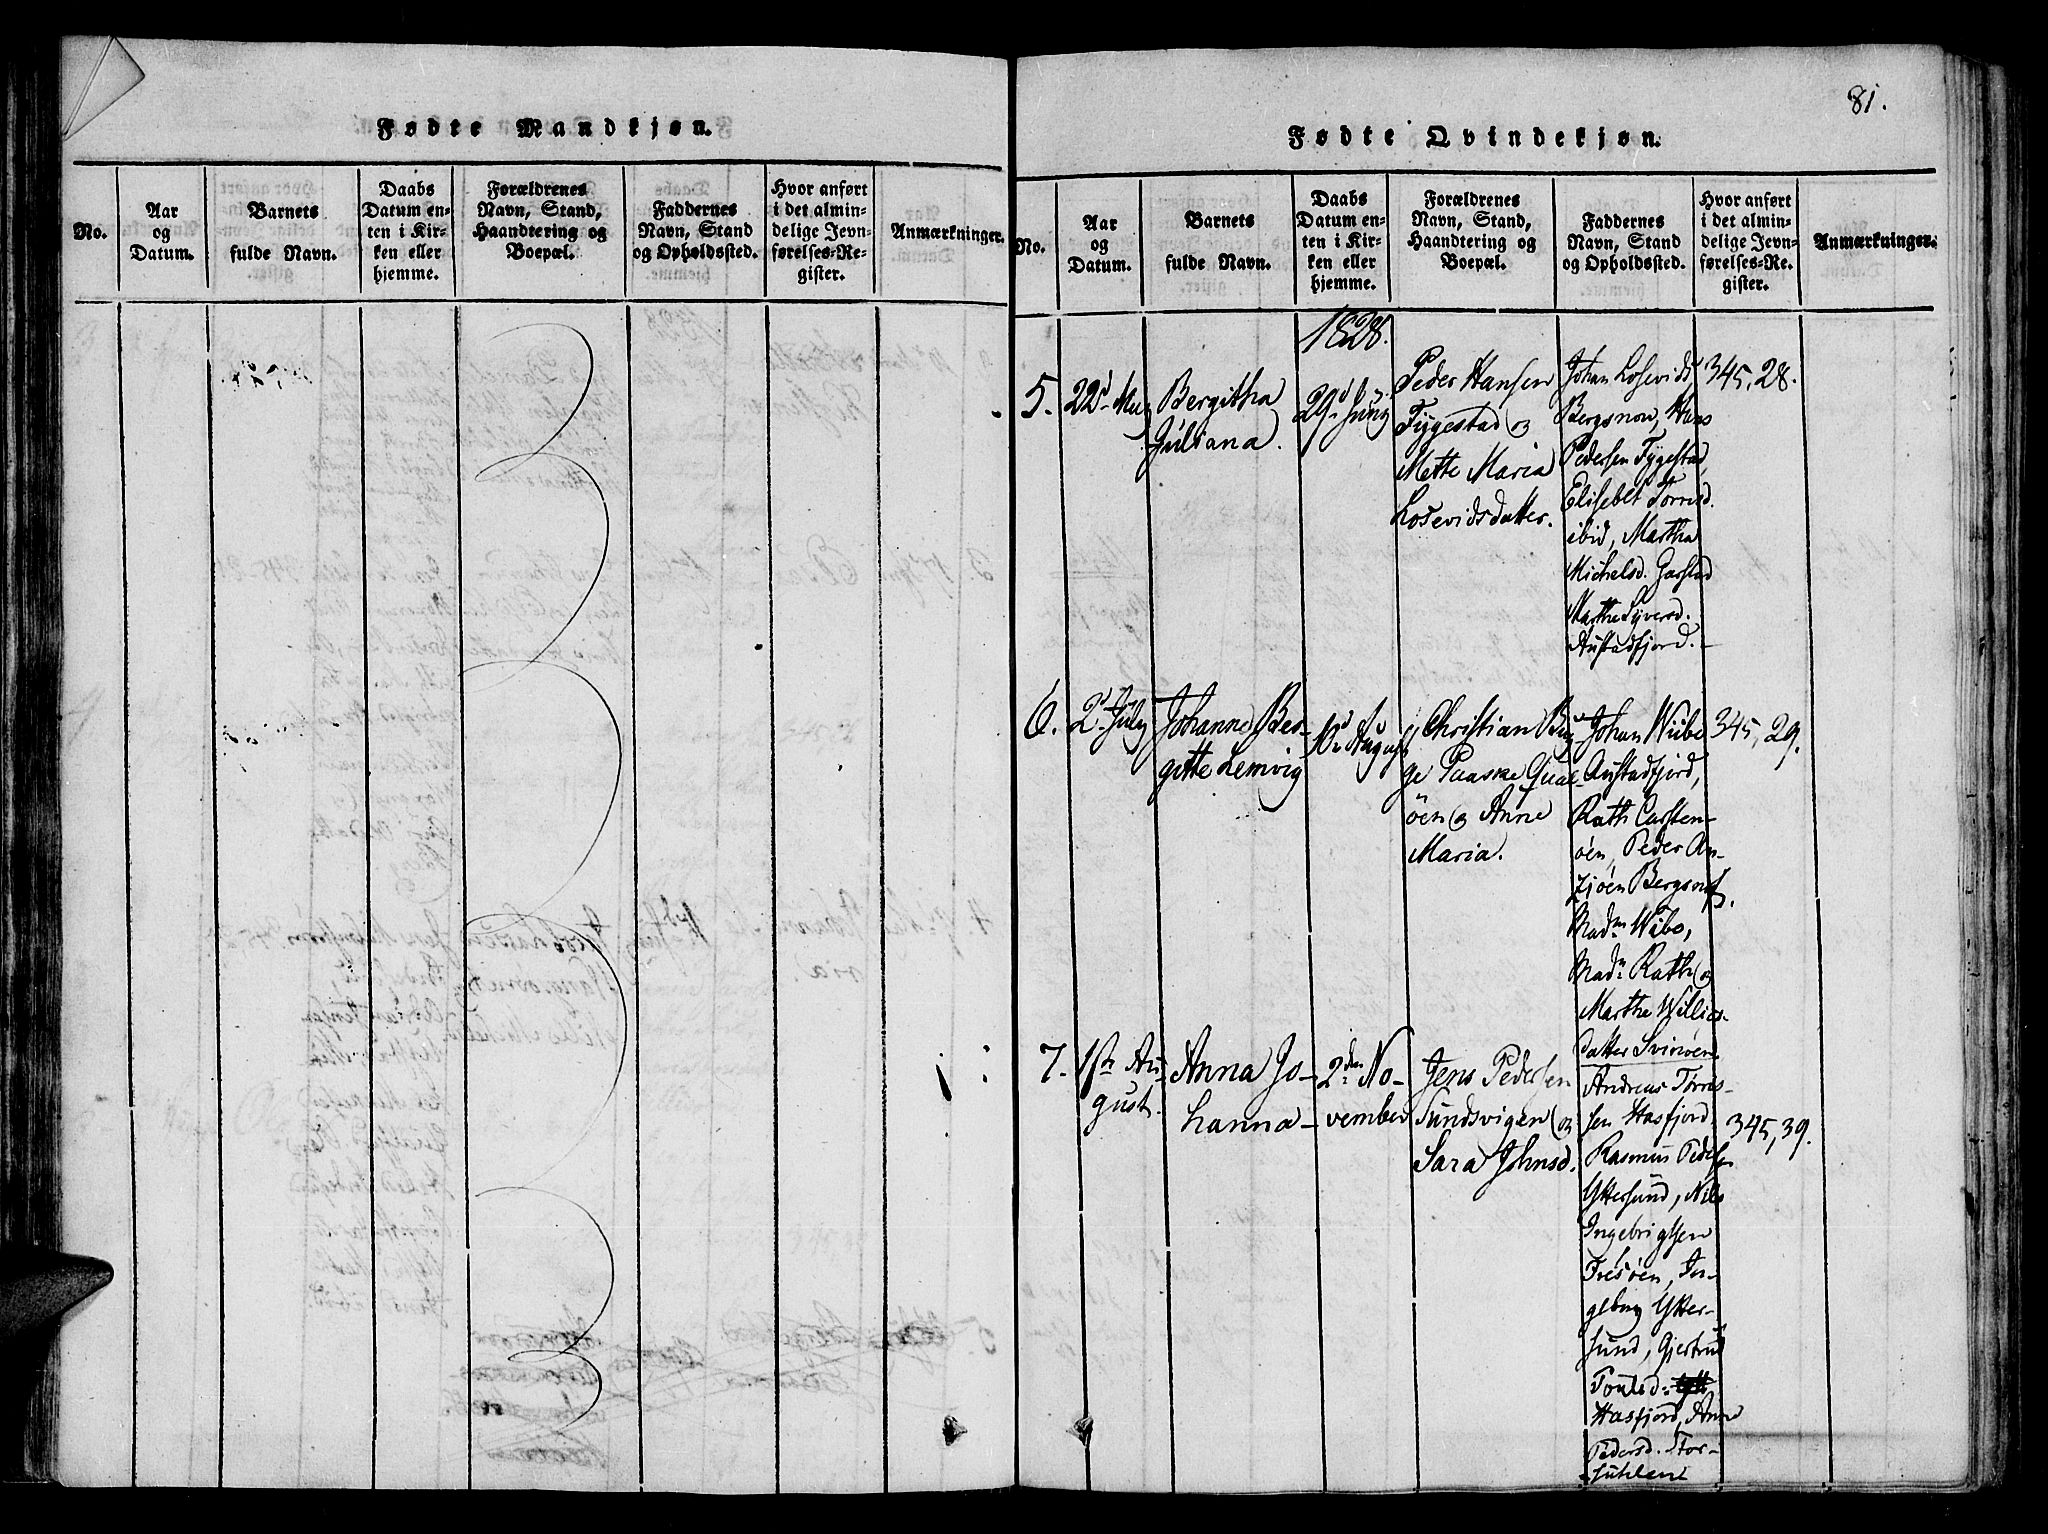 Fødte Mandkjøn.
No.
Aar
og
Datum.
Barnets
fulde Navn.
Daabs
Datum en-
ten i Kir-
ken eller
hjemme.
Forældrenes
Navn, Stand,
Haandtering og
Boepæl.
Faddernes
Navn, Stand
og Opholdssted.
Hvor anført
i det almin-
delige Jevn-
førelses-Re-
gister.
Anmærkninger.
81.
Fødte Qvindekjøn.
No.
Aar
og
Datum.
Barnets
fulde Navn.
Daabs
Datum en-
ten i Kir-
ken eller
hjemme.
Forældrenes
Navn, Stand,
Haandtering og
Boepæl.
Faddernes
Navn, Stand
og Opholdssted.
Hvor anført
i det almin-
delige Jevn-
førelses-Re-
gister.
Anmærkninger.
1828.
5.
22d
Bergitha
Juliana.
29d Juny
Peder Hansen
Tygestad og
Mette Maria
Losevidsdatter.
Johan Losevids
Bergsnov, Hans
Pedersen Tygestad
Elisebet Torrisd.
ibid, Martha
Michelsd. Garstad
Marthe Syversd.
Austadfjord.
345, 28.
6.
2d July
Johanne Ber-
gitte Lemvig
10d August
Christian Bug-
ge Paaske Qval-
öen og Anne
Maria.
Johan Wibe
Austadfjord,
Rath Carsten-
öen, Peder An-
zjöen Bergsnof.
Madm Wibe,
Madm Rath og
Marthe Willies-
datter Svinöen
345, 29.
7.
1ste Au-
gust.
Anna Jo-
hanna
2den No-
vember
Jens Pedersen
Sundsvigen og
Sara Johnsd.
Andreas Torris-
sen Hasfjord,
Rasmus Peders
Yttersund, Nils
Ingebrigtsen
Fresöen, In-
geborg Ytter-
sund, Gjertrud
Poulsd.
Hasfjord, Anne
Pedersd. Stor-
345, 39.